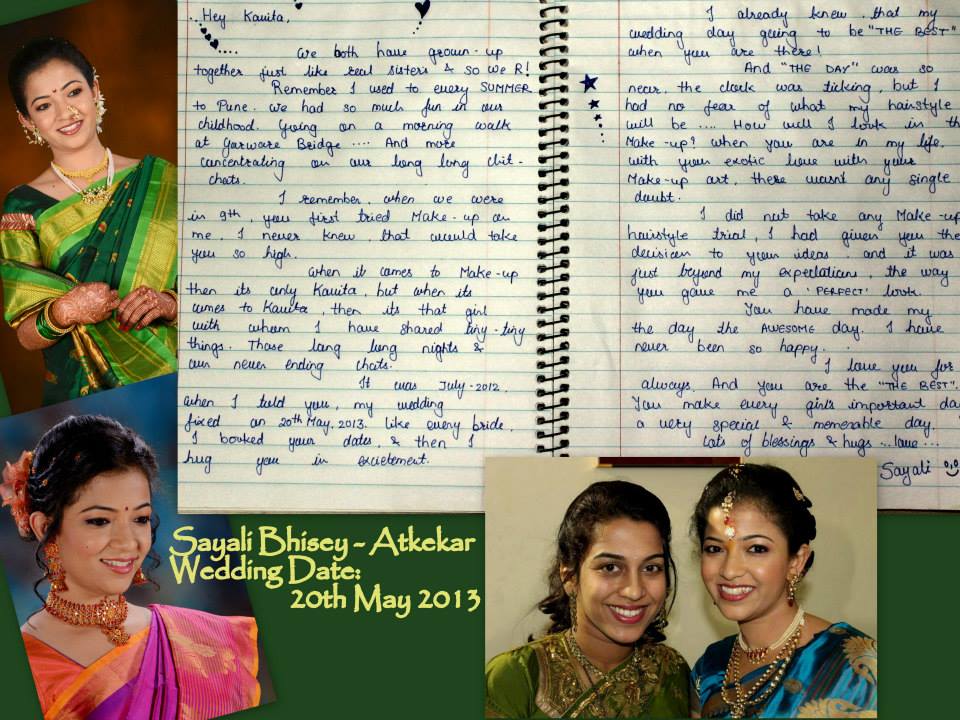 Hey Kavita,
We both have grown-up
together just like real sisters & so we R!
Remember I used to every SUMMER
to Pune. we had so much fun in our
childhood. Going on a morning walk
at Garware Bridge .... And more
concentrating on our long long chit-
chats.
I remember, when we were
in 9th, you first tried Make-up on
me. I never knew that would take
you so high.
When it comes to Make-up
then its only Kavita, but when its
comes to Kavita, then its that girl
with whom I have shared tiny-tiny
things. Those long long nights &
our never ending chats.
It was July-2012.
when I told you, my wedding
fixed on 20th May, 2013. like every bride.
I booked your dates, & then I
hug you in excietement.
I already knew that my
wedding day going to be "THE BEST"
when you are there!
And "THE DAY" was so
near, the clock was ticking, but I
had no fear of what my hairstyle
will be .... How will I look in th
Make-up? when you are in my life.
with your exotic love with your
Make-up art, there wasn't any single
doubt.
I did not take any Make-up
hairstyle trial, I had given you the
decision to your ideas. and it was
just beyond my expectations, the way
you gave me a 'PERFECT' look.
You have made my
the day the AWESOME day. I have
never been so happy.
I love you for
always. And you are the "THE BEST".
You make every girl's important day
a very special & memorable day.
Lots of blessings & hugs ... love ...
Sayali
Sayali Bhisey - Atkekar
Wedding Date:
20th May 2013